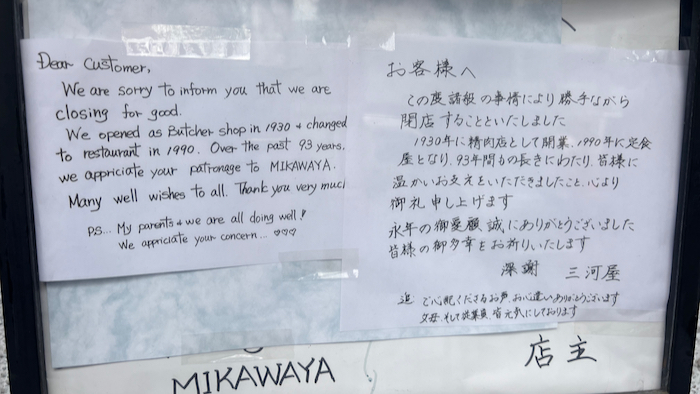 Dear Customer,
We are sorry to inform you that we are
closing for good.
We opened as Butcher shop in 1930 & changed
to restaurant in 1990. Over the past 93 years,
we appriciate your patronage to MIKAWAYA.
Many well wishes to all. Thank you very much
P.S... My parents & we are all doing well!
We appriciate your concern... ♡♡♡
お客様へ
この度諸般の事情により勝手ながら
閉店することといたしました
1930年に精肉店として開業、1990年に定食
屋となり、93年間もの長きにわたり、皆様に
温かいお支えをいただきましたこと、心より
御礼申し上げます
永年の御愛顧、誠にありがとうございました
皆様の御多幸をお祈りいたします
深謝 三河屋
追 ご心配くださるお声、お心遣いありがとうございます
父母、そして従業員、皆元気にしております
MIKAWAYA
店主